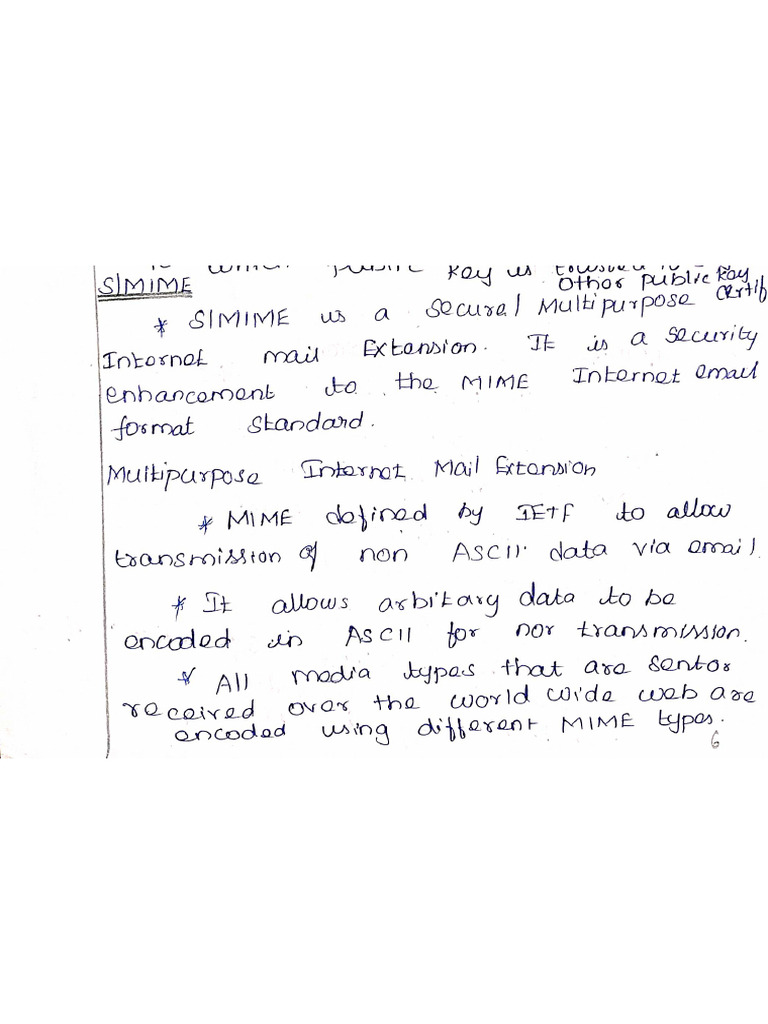 public key is
Other public key
S/MIME certif
* S/MIME is a Secure/ Multipurpose
Internet mail Extension. It is a security
enhancement to the MIME Internet email
format standard.
Multipurpose Internet Mail Extension
* MIME defined by IETF to allow
transmission of non ASCII data via email.
* It allows arbitary data to be
encoded in ASCII for nor transmission.
* All media types that are sent or
received over the world wide web are
encoded using different MIME types.
6